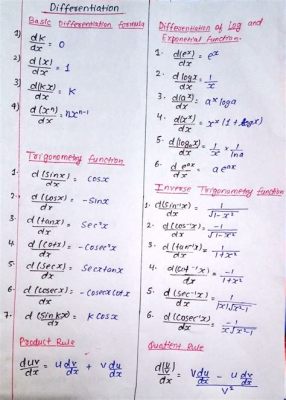 Differentiation
Basic Differentiation formula
1) dk/dx = 0
2) d(x)/dx = 1
3) d(kx)/dx = k
4) d(xⁿ)/dx = nxⁿ⁻¹
Trigonometry function
1. d(sinx)/dx = cosx
2. d(cosx)/dx = -sinx
3. d(tanx)/dx = sec²x
4. d(cotx)/dx = -cosec²x
5. d(secx)/dx = secxtanx
6. d(cosecx)/dx = -cosecxcotx
7. d(sinkx)/dx = kcosx
Product Rule
duv/dx = u dv/dx + v du/dx
Differentiation of Log and
Exponential function.
1. d(eˣ)/dx = eˣ
2. d logx/dx = 1/x
3. d(aˣ)/dx = aˣ loga
4. d(xˣ)/dx = xˣ(1+logx)
5. d(logₐx)/dx = 1/x × 1/lna
6. d eᵃˣ/dx = a eᵃˣ
Inverse Trigonometry function
1. d(sin⁻¹x)/dx = 1/√1-x²
2. d(cos⁻¹x)/dx = -1/√1-x²
3. d(tan⁻¹x)/dx = 1/1+x²
4. d(cot⁻¹x)/dx = -1/1+x²
5. d(sec⁻¹x)/dx = 1/|x|√x²-1
6. d(cosec⁻¹x)/dx = -1/|x|√x²-1
Quotient Rule
d(u/v)/dx = v du/dx - u dv/dx / v²